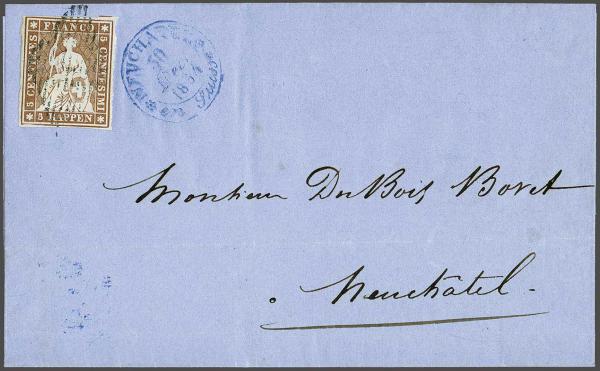 FRANCO
5 CENTIMES
5 CENTESIMI
5 RAPPEN
NEUCHATEL Suisse
30
1854
Monsieur DuBois Bovet
Neuchâtel.